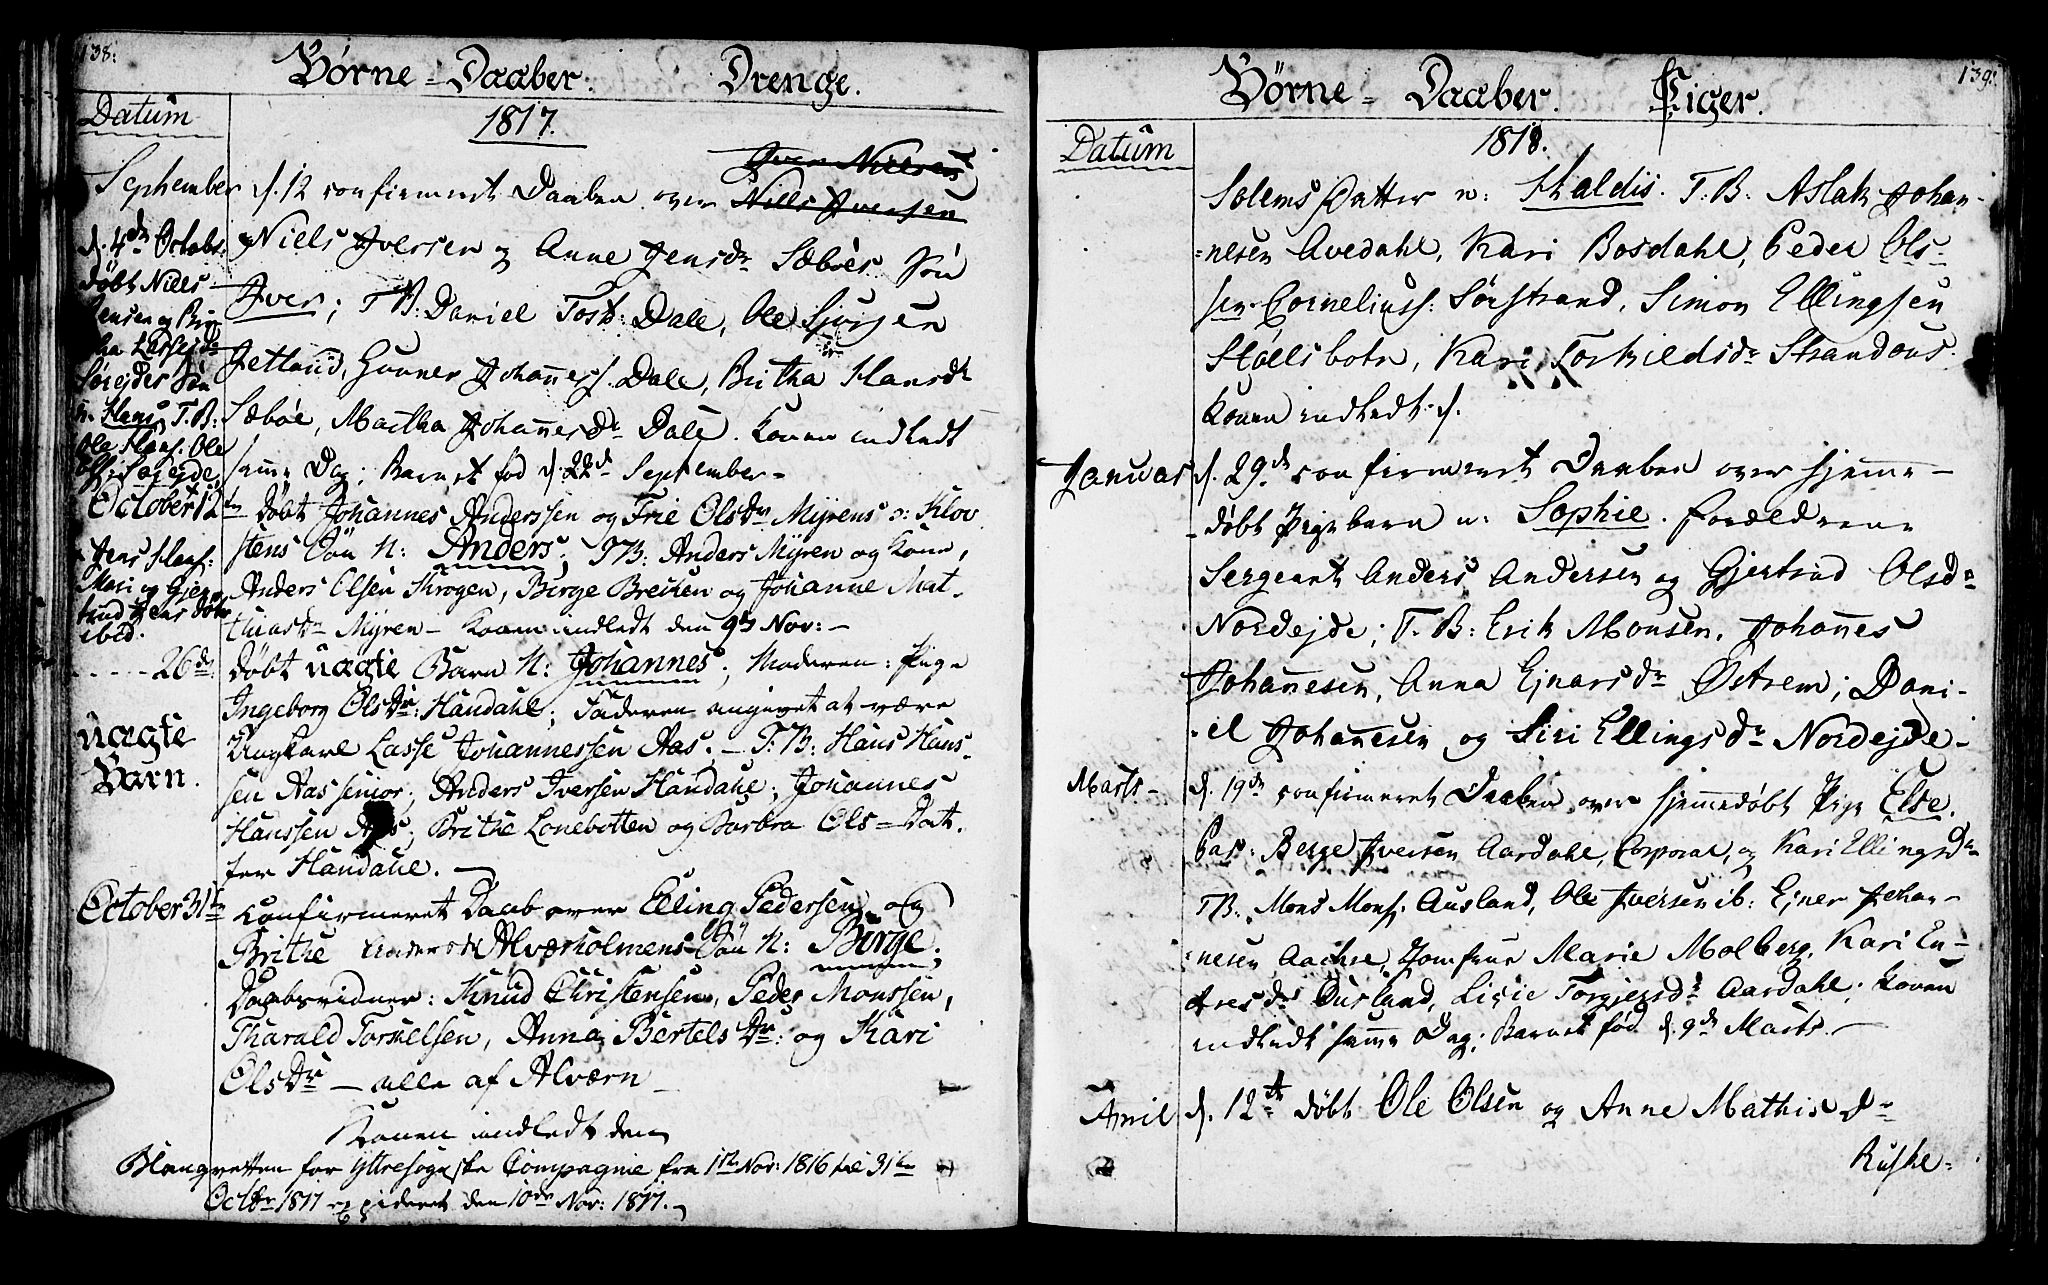 138:
Börne-Daaber. Drenge.
Datum
1817.
Iver Nielsen
September d. 12 confirmeret Daaben over Niels Iversen
Niels Iversen og Anne Jensdr Sæbøes Søn
Iver; T.B: Daniel Tost: Dale, Ole Sjursen
Jetlund, Gunner Johanness. Dale, Britha Hansdr
Sæbøe, Martha Johannesdr Dale. Konen indledt
samme Dag; Barnet fød d. 22d September-
d. 4de Octobr
døbt Niels
Jensen og Bri-
tha Lassesdr
Sørejdes Søn
n. Hans T.B:
Ole Hans. Ole
Ols. Sørejde,
Jens Hans:
Mari og Gjer-
trud Jens døtr
ibid.
October 12te døbt Johannes Anderssen og Frie Olsdr Myrens o: Klov
stens Søn N: Anders; T.B: Anders Myren og Kone,
Anders Olsen Krogen, Børge Breiken og Johanne Mat-
thiasdr Myren - Konen indledt den 9de Nov: -
- - - - 26de døbt uægte Barn N: Johannes; Moderen: Pige
Ingeborg Olsdr: Haudahl; Faderen angivet at være
uægte
Barn.
Ungkarl Lasse Johannessen Aas. - T.B: Hans Hans-
sen Aas senior; Anders Iversen Haudahl; Johannes
Hanssen Aas; Brithe Lonebotten og Barbro Ols-Dat-
ter Haudahl. -
October 31te confirmeret Daab over Elling Pedersen og
Brithe Andersdr Alværholmens Søn N: Børge;
Daabsvidner: Knud Christensen, Peder Monssen,
Tharald Torkelsen, Anna Bertels Dr: og Kari
Ols Dr - alle af Alværn -
Konen indledt den
Blanqvetten for Yttresogn ske Compagnie fra 1te Nov: 1816 til 31te
Octbr 1817 expideret den 10de Nov: 1817.
139:
Börne-Daaber. Piger.
Datum
1818.
Solems Datter n: Haldis. T.B: Aslak Johan-
nesen Avedahl, Kari Bosdahl, Peder Ols-
sen Corneliuss: Sørstrand, Simon Ellingsen
Støllsbotn, Kari Torkildsdr Strandøus.
Konen indledt d.
Januar d. 29de confirmeret Daaben over hjemme-
døbt Pigebarn n: Sophie. Forældrene
Sergeant Anders Andersen og Gjertrud Olsdr
Nordejde; T.B: Erik Monsen, Johannes
Johannesen, Anna Ejnarsdr Østrem; Dani-
el Johannesen og Siri Ellingsdr Nordejde-
Marts- d. 19de confirmeret Daaben over hjemmedøbt Pige Else.
Par: Berge Iversen Aardahl, Corporal, og Kari Ellingsdr
T.B: Mons Mons: Ausland, Ole Iversen ib: Ejner Johan-
nesen Aachre, Jomfrue Marie Molberg, Kari En-
dresdr Ousland, Lisie Torgjersdr Aardahl; Konen
indledt samme Dag; Barnet fød d. 9de Marts. -
April d. 12te døbt Ole Olsen og Anne Mathisdr
Ruske-